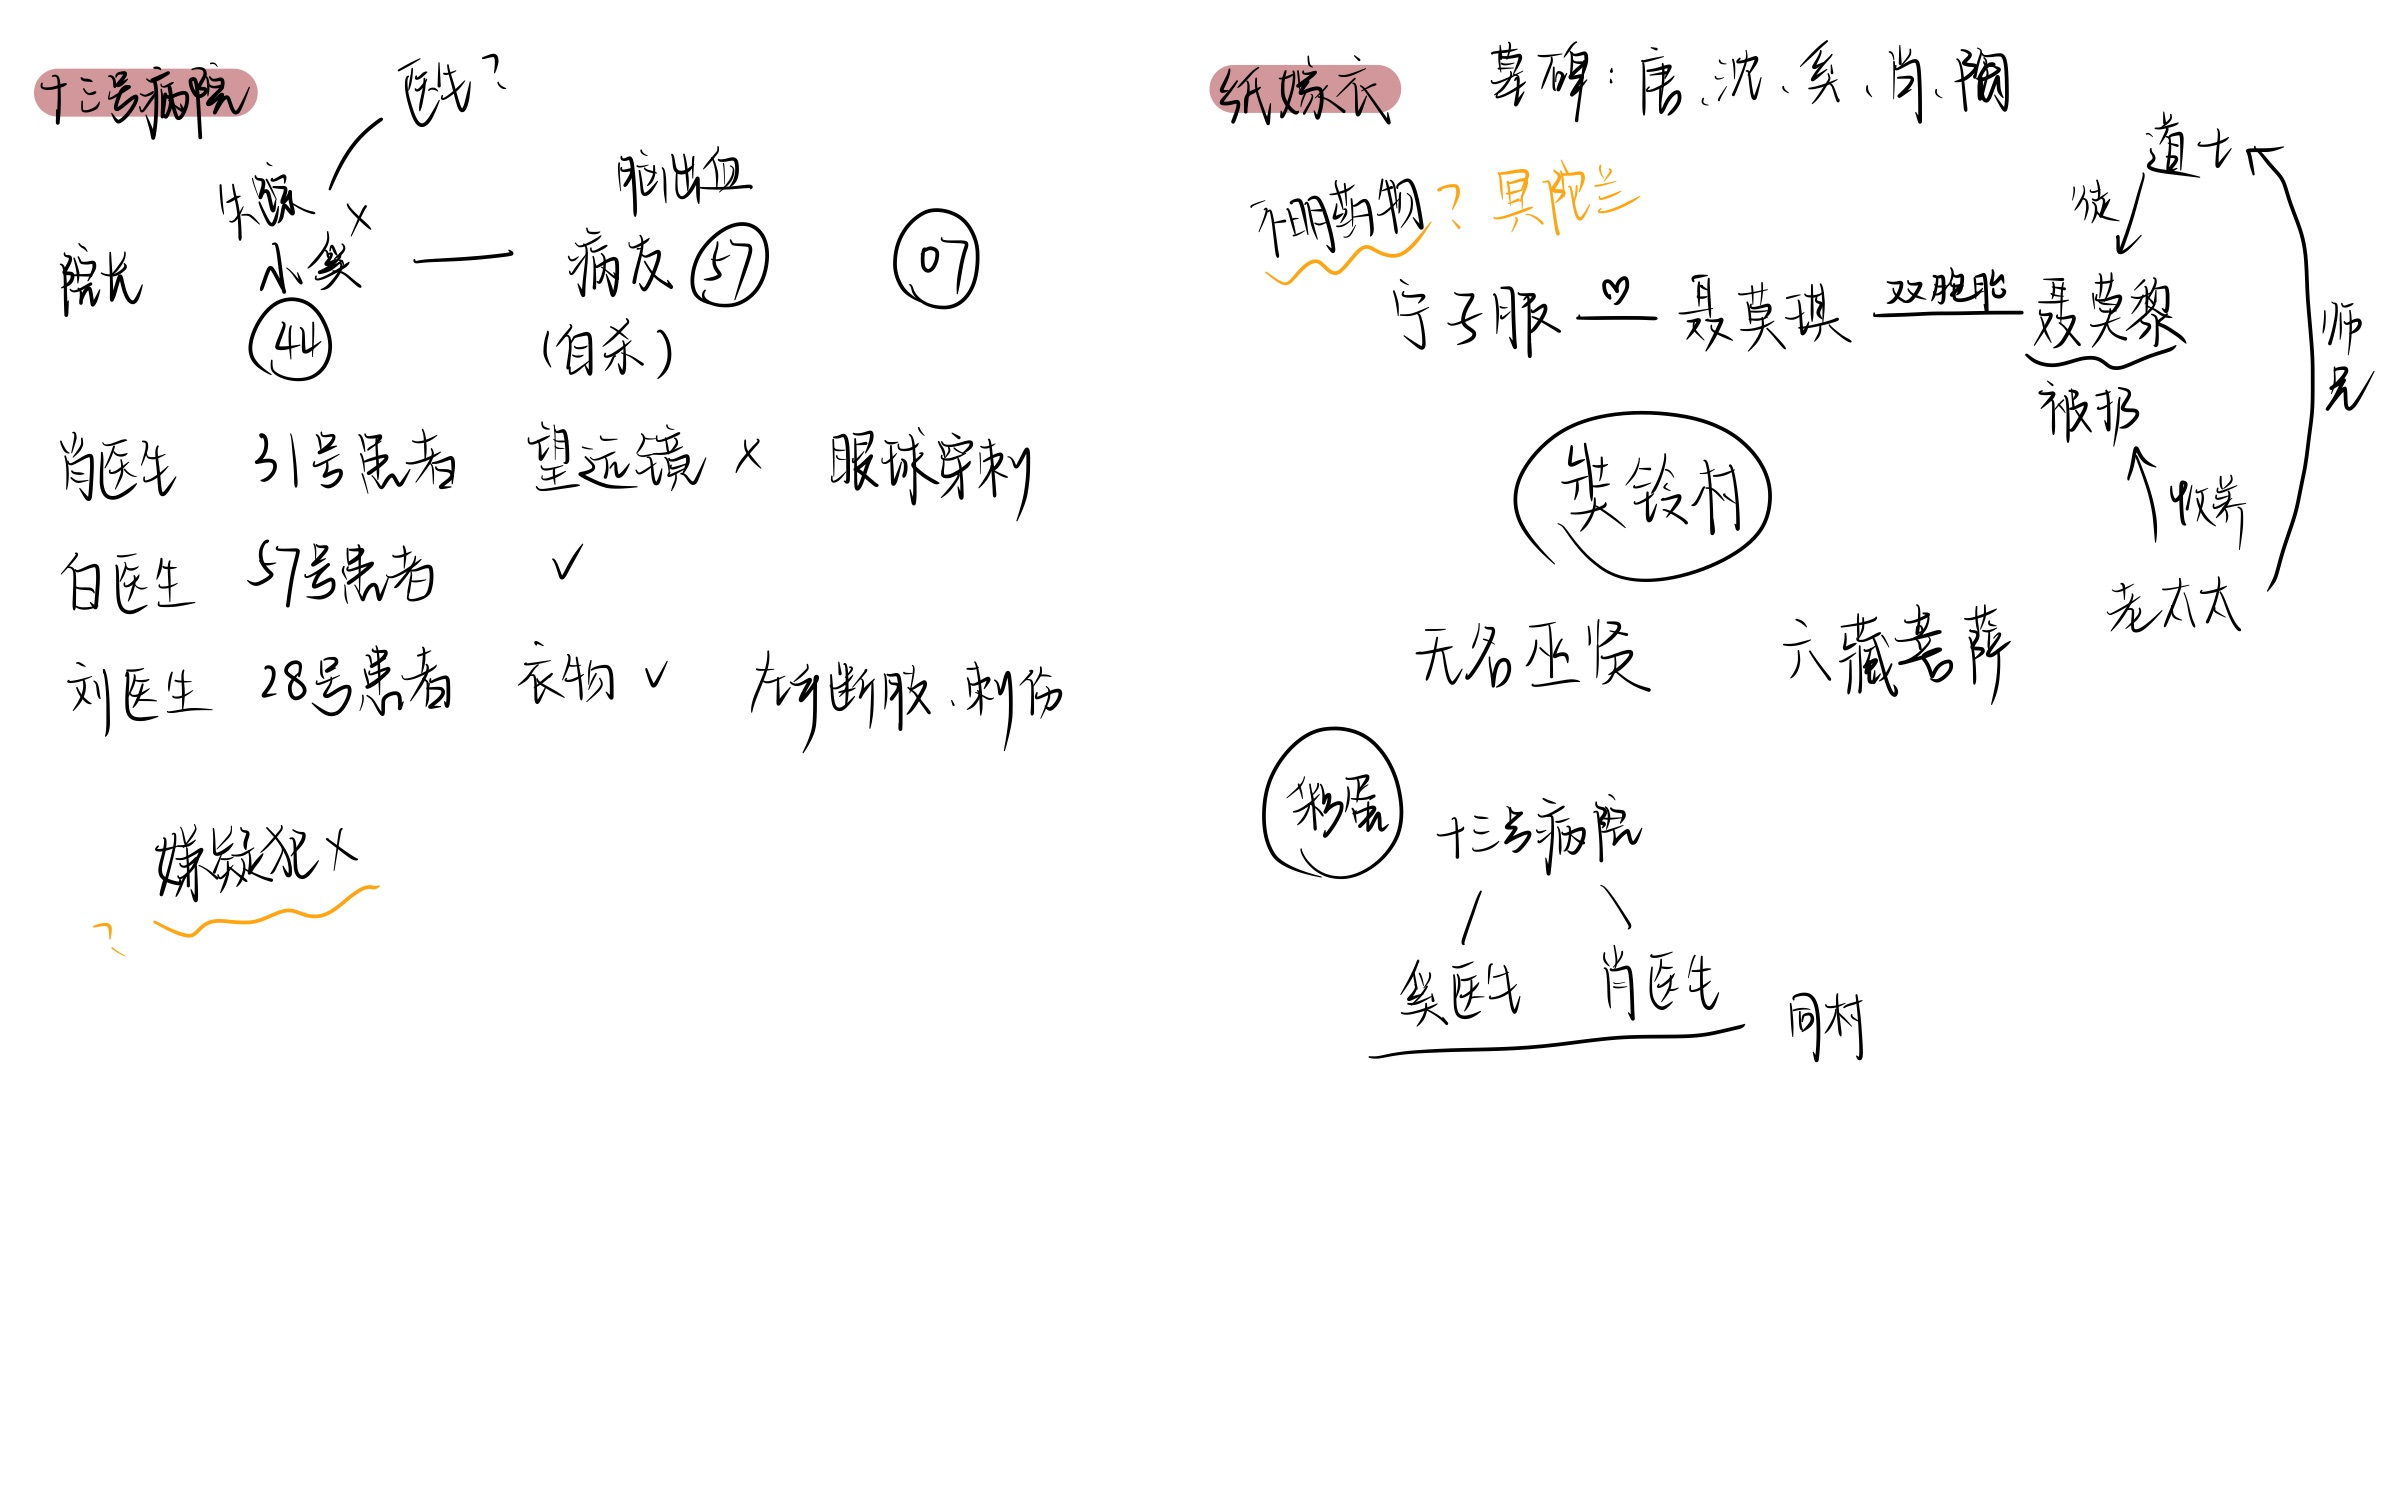 十三号病院
医生?
失踪
脑出血
院长 小奚 × 病友 57 07
44 (自杀)
肖医生 31号患者 望远镜 × 眼球穿刺
白医生 57号患者 ✓
刘医生 28号患者 衣物 ✓ 左臂断肢、刺伤
嫌疑犯 ×
?
纸嫁衣 墓碑:唐、沈、奚、肖、陶
道士
不明药物?曼陀兰
徒
宁子服 ♡ 聂莫琪 双胞胎 聂莫黎
师兄
被扔
收养
奘铃村
老太太
无名巫贤 六藏菩萨
彩蛋 十三号病院
奚医生 肖医生 同村